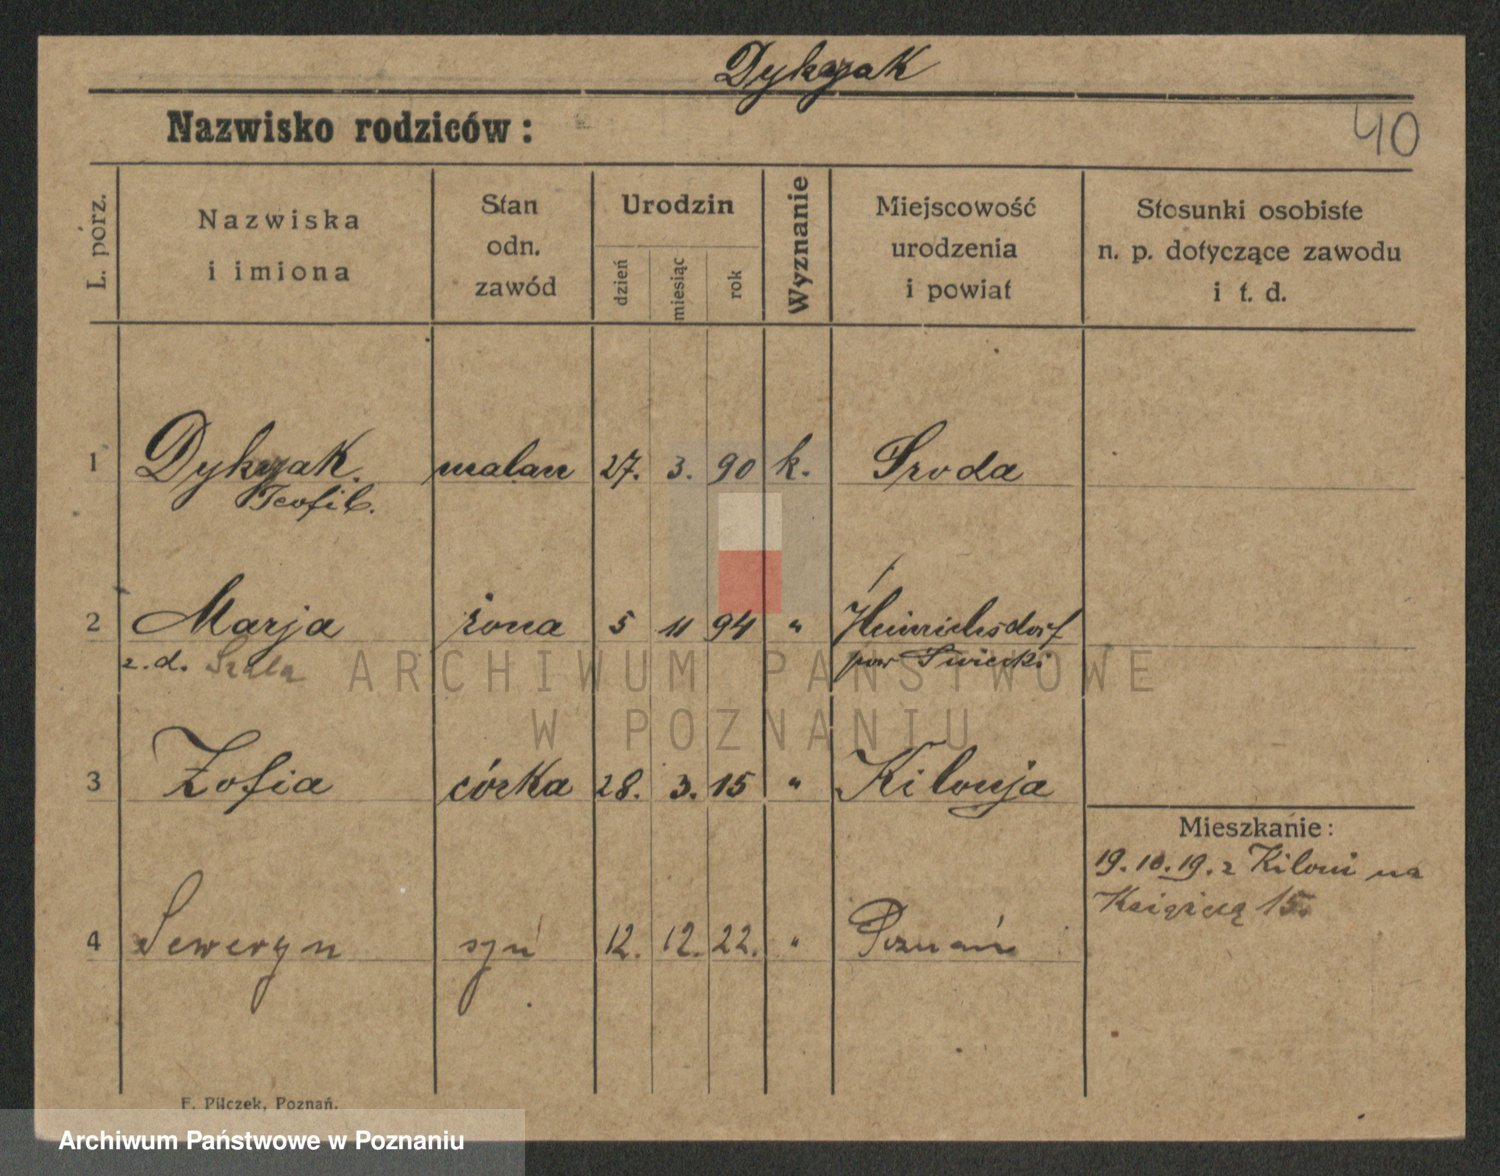 Dykzak
Nazwisko rodziców:
40
L. porz.
Nazwiska
i imiona
Stan
odn.
zawód
Urodzin
dzień
miesiąc
rok
Wyznanie
Miejscowość
urodzenia
i powiat
Stosunki osobiste
n. p. dotyczące zawodu
i t. d.
1 Dykzak malarz 27. 3. 90 k. Sroda
Teofil.
2 Marja żona 5 11 94 " Heinrichsdorf
z. d. Szala pow Swiecki
3 Zofia córka 28. 3. 15 " Kilonja
Mieszkanie:
19.10.19. z Kiloni na
15.
4 Seweryn syn 12. 12. 22. " Poznań
F. Pilczek, Poznań.
ARCHIWUM PAŃSTWOWE
W POZNANIU
Archiwum Państwowe w Poznaniu